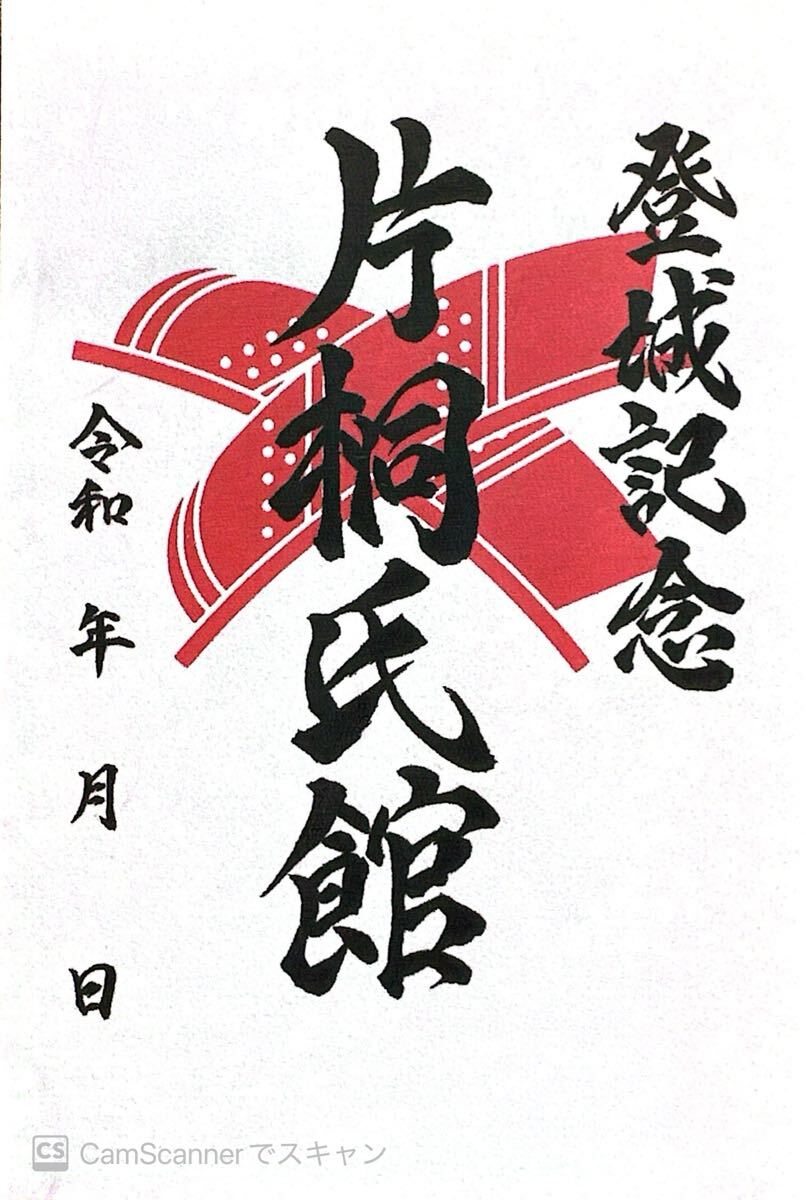 登城記念
片桐氏館
令和　年　月　日
CS CamScanner でスキャン